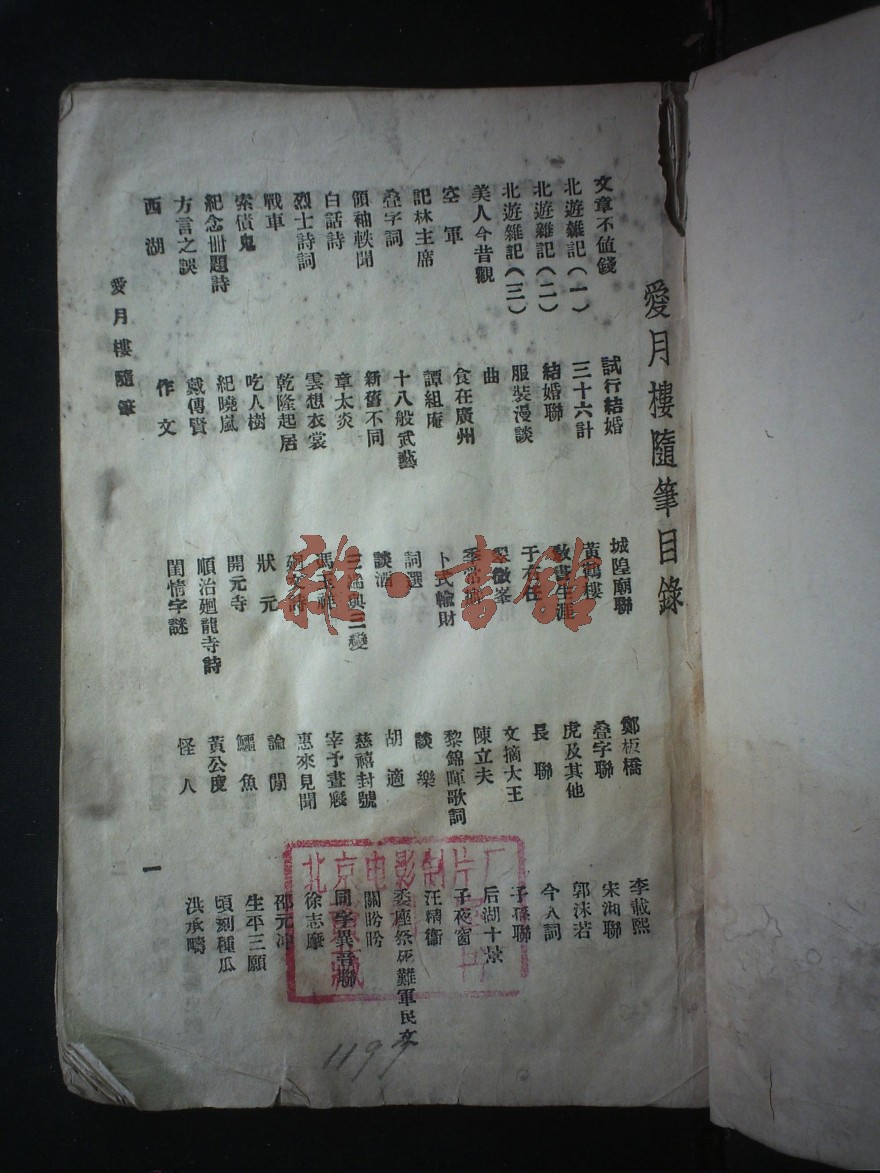 愛月樓隨筆目錄
文章不值錢
北遊雜記（一）
北遊雜記（二）
北遊雜記（三）
美人今昔觀
空軍
記林主席
叠字詞
領袖軼聞
白話詩
烈士詩詞
戰車
索債鬼
紀念冊題詩
方言之誤
西湖
試行結婚
三十六計
結婚聯
服裝漫談
曲
食在廣州
譚組庵
十八般武藝
新舊不同
章太炎
雲想衣裳
乾隆起居
吃人樹
紀曉嵐
戴傳賢
作文
城隍廟聯
黃鶴樓
教書生涯
于右任
翠微峯
卜式輸財
詞選
談酒
三
與三變
馮玉祥
狀元
開元寺
順治廻龍寺詩
閨情字謎
鄭板橋
叠字聯
虎及其他
長聯
文摘大王
陳立夫
黎錦暉歌詞
談樂
胡適
慈禧封號
宰予晝寢
惠來見聞
論閒
鱷魚
黃公度
怪人
李載熙
宋湘聯
郭沫若
今人詞
子孫聯
后湖十景
子夜窗
汪精衞
委座祭死難軍民文
關盼盼
同字異音聯
徐志摩
邵元冲
生平三願
頃刻種瓜
洪承疇
愛月樓隨筆
一
雜·書館
北京电影制片厂
藏
1197